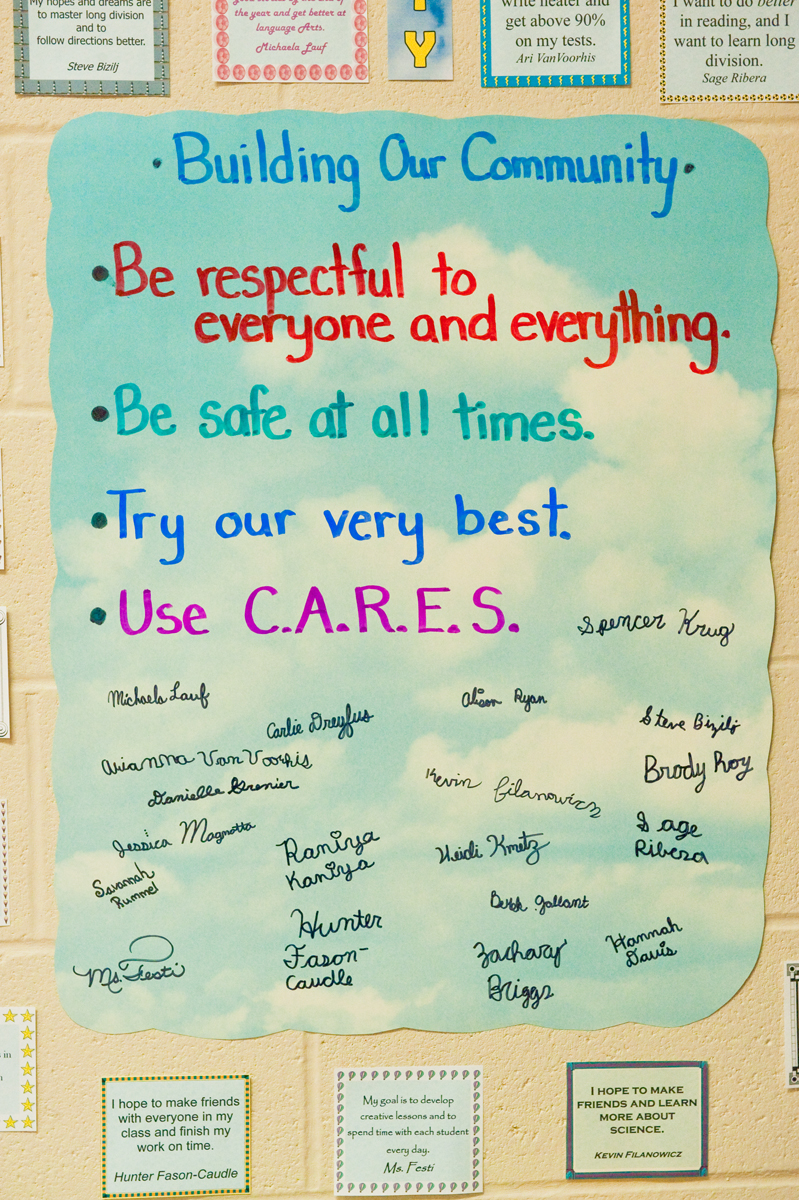 My hopes and dreams are
to master long division
and to
follow directions better.
Steve Bizilj
the year and get better at
language Arts.
Michaela Lauf
TY
write neater and
get above 90%
on my tests.
Ari VanVoorhis
I want to do better
in reading, and I
want to learn long
division.
Sage Ribera
• Building Our Community •
• Be respectful to
everyone and everything.
• Be safe at all times.
• Try our very best.
• Use C.A.R.E.S.
Spencer Krug
Michaela Lauf
Alison Ryan
Carlie Dreyfus
Steve Bizilj
Arianna Van Voorhis
Brody Roy
Danielle Grenier
Kevin Filanowicz
Jessica Magnotta
Sage
Ribera
Raniya
Kaniya
Heidi Kmetz
Savannah
Rummel
Gallant
Hunter
Fason-
Caudle
Zachary
Briggs
Hannah
Davis
Ms. Festi
in
I hope to make friends
with everyone in my
class and finish my
work on time.
Hunter Fason-Caudle
My goal is to develop
creative lessons and to
spend time with each student
every day.
Ms. Festi
I hope to make
friends and learn
more about
science.
Kevin Filanowicz